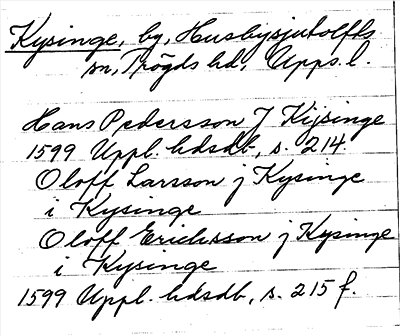 Kysinge, by, Husbysjutolfts
sn, Trögds hd, Upps. l.
Hans Pedersson J Kijsinge
1599 Uppl. hdsdb, s. 214
Oloff Larsson j Kysinge
i Kysinge
Oloff Erichsson j Kysinge
i Kysinge
1599 Uppl. hdsdb, s. 215 f.